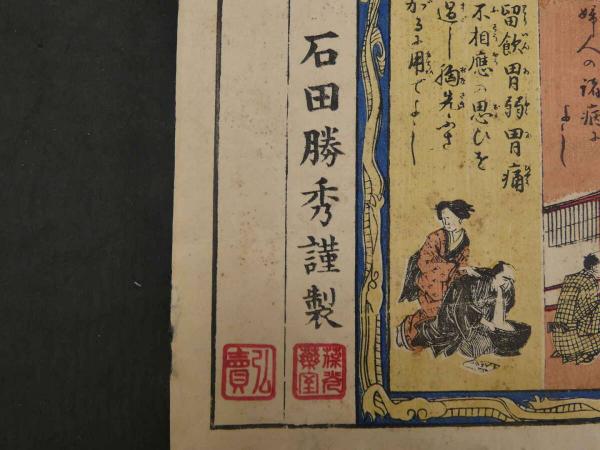 婦人の諸病に
よし
留飲胃弱胃痛
不相應の思ひを
過し胸先ふさ
がるに用てよし
石田勝秀謹製
弘賣